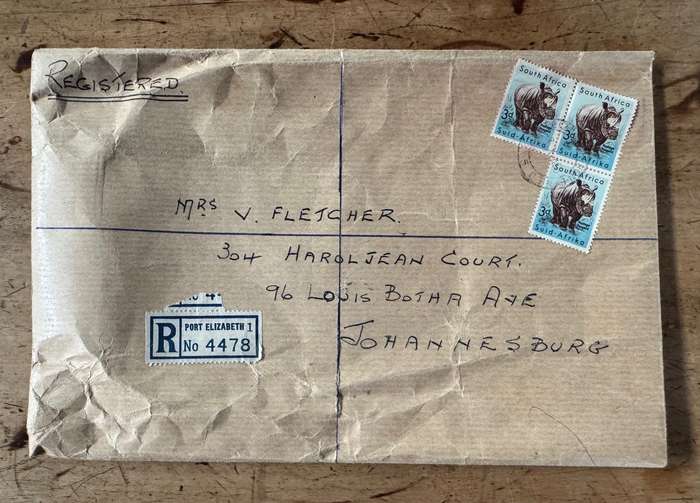 REGISTERED.
South Africa
3d
Suid-Afrika
South Africa
3d
Suid-Afrika
South Africa
3d
Suid-Afrika
MRS V. FLETCHER.
304 HAROLJEAN COURT.
96 LOUIS BOTHA AVE
JOHANNESBURG
R PORT ELIZABETH 1
No 4478